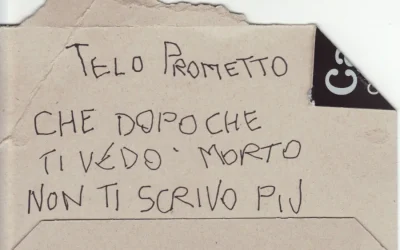 TELO PROMETTO
CHE DOPO CHE
TI VEDO MORTO
NON TI SCRIVO PIU
Ca